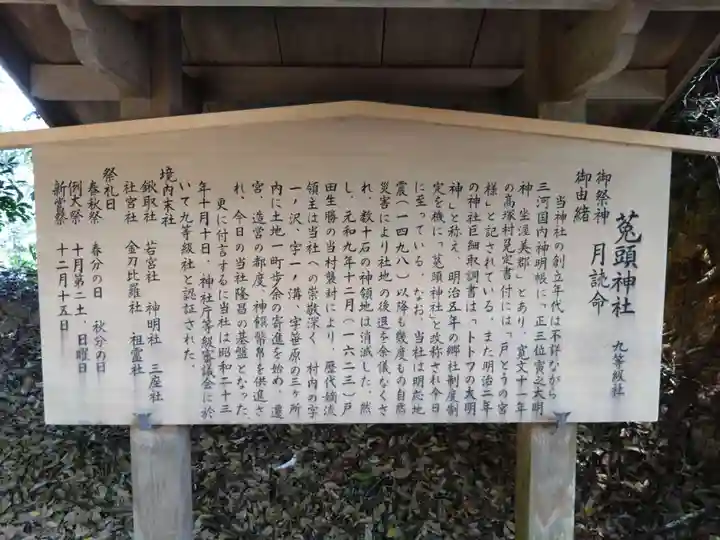 菟頭神社　九等級社
御祭神　月読命
御由緒
当神社の創立年代は不詳ながら
三河国内神明帳に、正三位寅之大明
神、坐渥美郡、とあり、寛文十一年
の高塚村見定書付には「戸とうの宮
様」と記されている。また明治三年
の神社巨細取調書は「トトフの大明
神」と称え、明治五年の郷社制度制
定を機に「菟頭神社」と改称され今日
に至っている。なお、当社は明応地
震（一四九八）以降も幾度もの自然
災害により社地の後退を余儀なくさ
れ、数十石の神領地は消滅した。然
し、元和九年十二月（一六二三）戸
田生勝の当村襲封により、歴代嫡流
領主は当社への崇敬深く、村内の字
一ノ沢、字一ノ溝、字笹原の三ヶ所
内に土地一町歩余の寄進を始め、遷
宮、造営の都度、神饌幣帛を供進さ
れ、今日の当社隆昌の基盤となった。
更に付言するに当社は昭和二十三
年十月十日、神社庁等級審議会に於
いて九等級社と認証された。
境内末社
鍬取社　若宮社　神明社　三座社
社宮社　金刀比羅社　祖霊社
祭礼日
春秋祭　春分の日　秋分の日
例大祭　十月第二土、日曜日
新嘗祭　十二月十五日